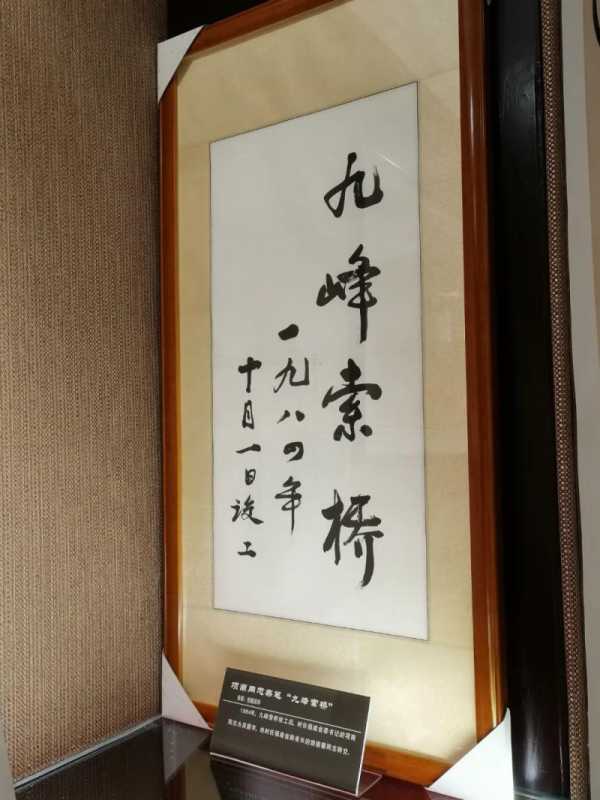 九峰索桥
一九八四年
十月一日竣工
项南同志亲笔“九峰索桥”
1984年,九峰索桥竣工后,时任福建省委书记的项南
同志为其题字,